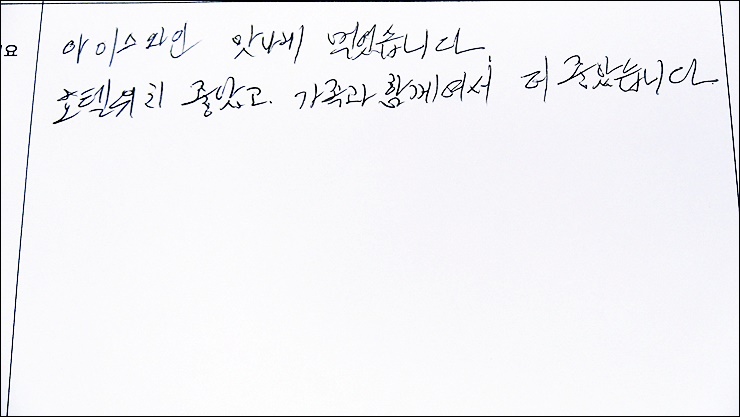 요
아이스와인 맛나게 먹었습니다.
호텔위치 좋았고. 가족과 함께여서 더 좋았습니다